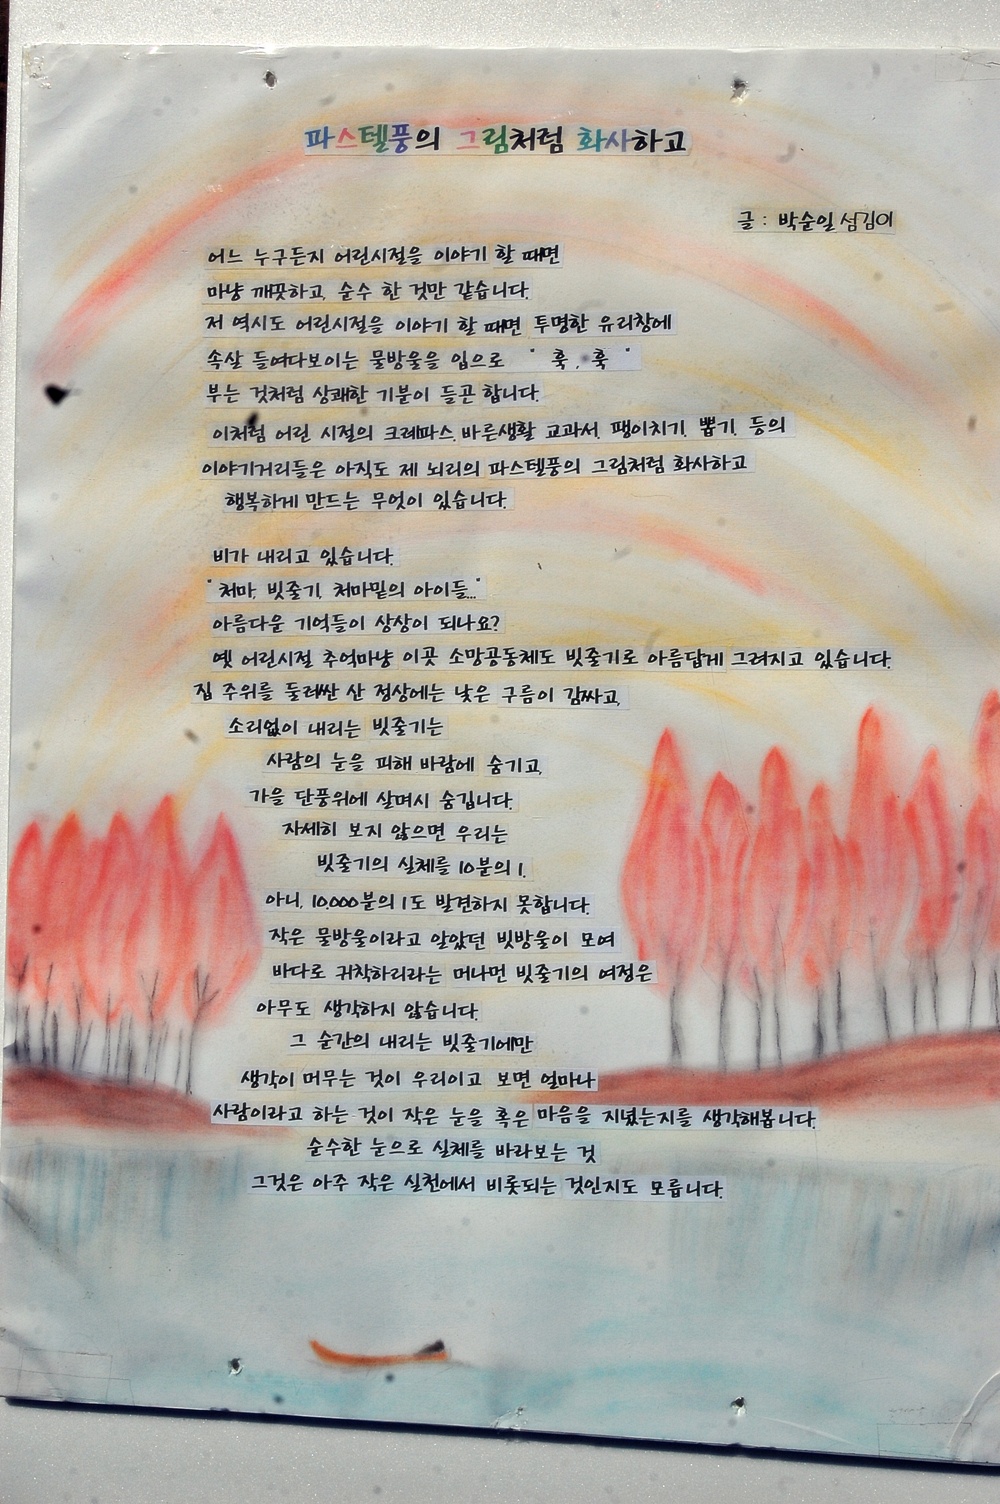 파스텔풍의 그림처럼 화사하고
글 : 박순일 섬김이
어느 누구든지 어린시절을 이야기 할 때면
마냥 깨끗하고, 순수 한 것만 같습니다.
저 역시도 어린시절을 이야기 할 때면 투명한 유리창에
속살 들여다보이는 물방울을 입으로 " 훅, 훅 "
부는 것처럼 상쾌한 기분이 들곤 합니다.
이처럼 어린 시절의 크레파스, 바른생활 교과서, 팽이치기, 뽑기, 등의
이야기거리들은 아직도 제 뇌리의 파스텔풍의 그림처럼 화사하고
행복하게 만드는 무엇이 있습니다.
비가 내리고 있습니다.
"처마, 빗줄기, 처마밑의 아이들..."
아름다운 기억들이 상상이 되나요?
옛 어린시절 추억마냥 이곳 소망공동체도 빗줄기로 아름답게 그려지고 있습니다.
집 주위를 둘러싼 산 정상에는 낮은 구름이 감싸고,
소리없이 내리는 빗줄기는
사람의 눈을 피해 바람에 숨기고,
가을 단풍위에 살며시 숨깁니다.
자세히 보지 않으면 우리는
빗줄기의 실체를 10분의 1,
아니, 10,000분의 1도 발견하지 못합니다.
작은 물방울이라고 알았던 빗방울이 모여
바다로 귀착하리라는 머나먼 빗줄기의 여정은
아무도 생각하지 않습니다.
그 순간의 내리는 빗줄기에만
생각이 머무는 것이 우리이고 보면 얼마나
사람이라고 하는 것이 작은 눈을 혹은 마음을 지녔는지를 생각해봅니다.
순수한 눈으로 실체를 바라보는 것
그것은 아주 작은 실천에서 비롯되는 것인지도 모릅니다.